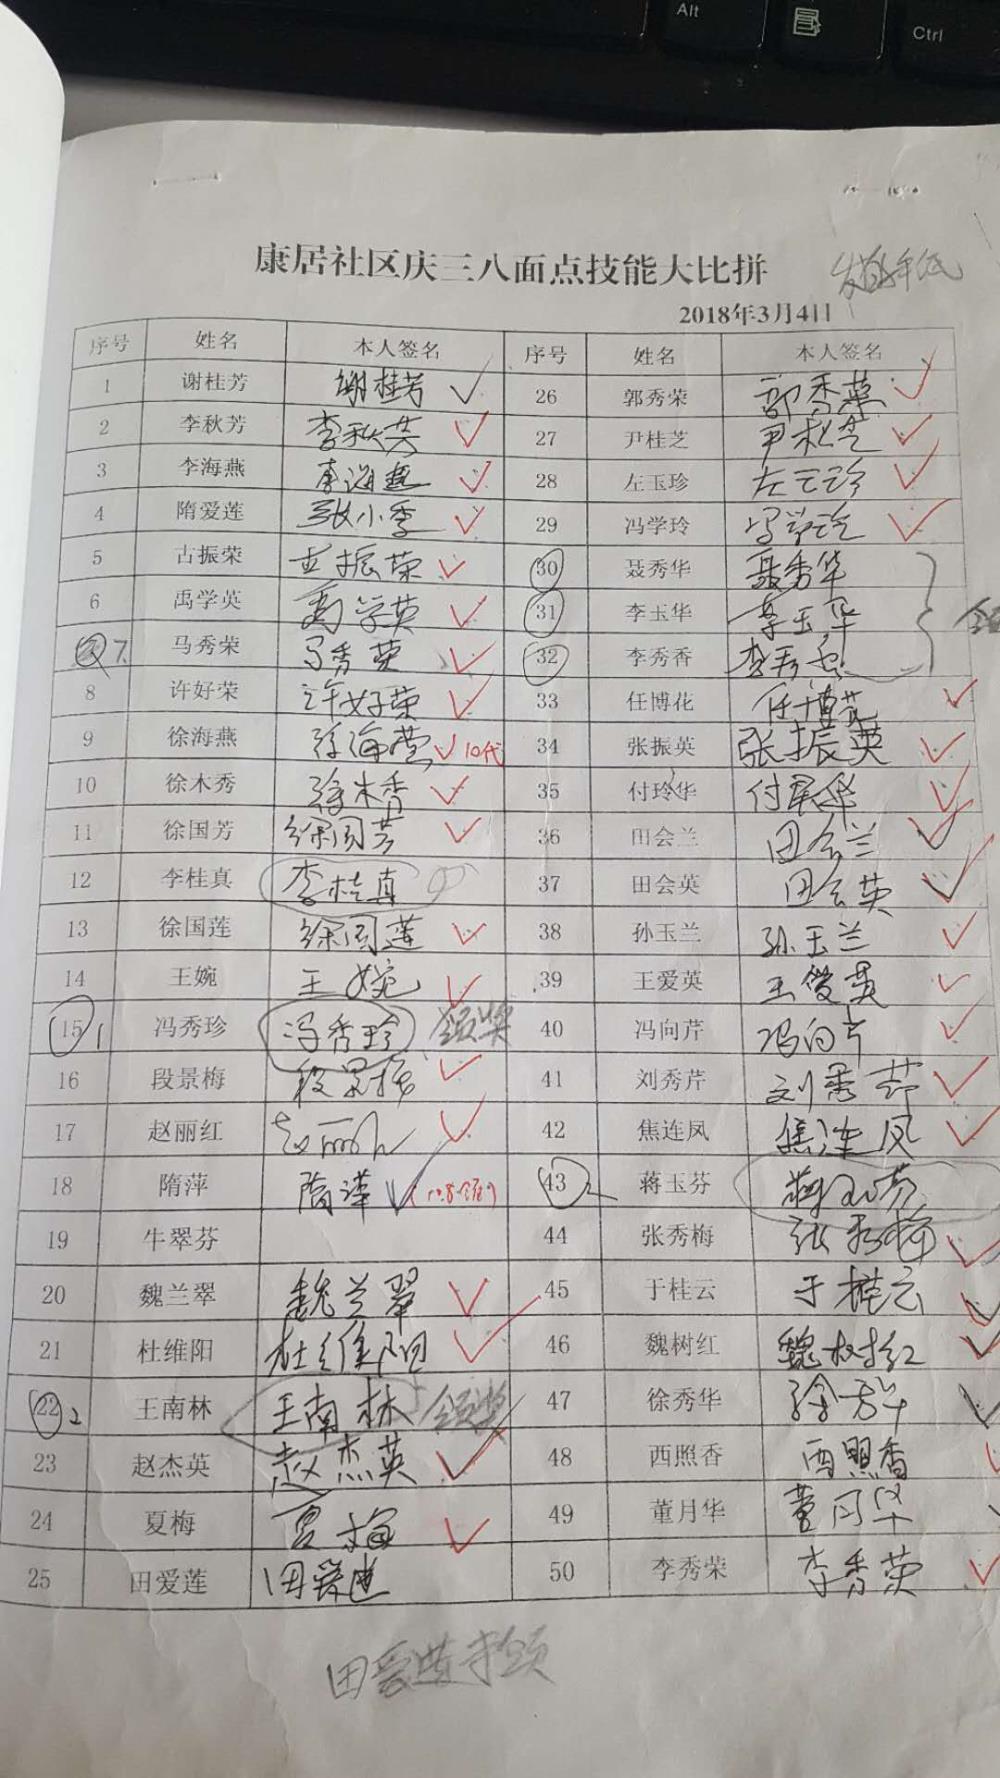 Alt
Ctrl
康居社区庆三八面点技能大比拼
2018年3月4日
序号 姓名 本人签名 序号 姓名 本人签名
1 谢桂芳 谢桂芳 26 郭秀荣 郭秀荣
2 李秋芳 李秋芳 27 尹桂芝 尹桂芝
3 李海燕 李海燕 28 左玉珍 左玉珍
4 隋爱莲 张小季 29 冯学玲 冯学玲
5 古振荣 古振荣 30 聂秀华 聂秀华
6 禹学英 禹学英 31 李玉华 李玉华
7 马秀荣 马秀荣 32 李秀香 李秀香
8 许好荣 许好荣 33 任博花 任博花
9 徐海燕 徐海燕 10代 34 张振英 张振英
10 徐木秀 徐木秀 35 付玲华
11 徐国芳 徐国芳 36 田会兰 田会兰
12 李桂真 李桂真 37 田会英 田会英
13 徐国莲 徐国莲 38 孙玉兰 孙玉兰
14 王婉 王婉 39 王爱英 王爱英
15 1 冯秀珍 冯秀珍 领奖 40 冯向芹 冯向芹
16 段景梅 段景梅 41 刘秀芹 刘秀芹
17 赵丽红 赵丽红 42 焦连凤 焦连凤
18 隋萍 隋萍 43 2 蒋玉芬 蒋玉芬
19 牛翠芬 44 张秀梅 张秀梅
20 魏兰翠 魏兰翠 45 于桂云 于桂云
21 杜维阳 杜维阳 46 魏树红 魏树红
22 2 王南林 王南林 领奖 47 徐秀华 徐秀华
23 赵杰英 赵杰英 48 西照香 西照香
24 夏梅 夏梅 49 董月华 董月华
25 田爱莲 田爱莲 50 李秀荣 李秀荣
田爱莲未领